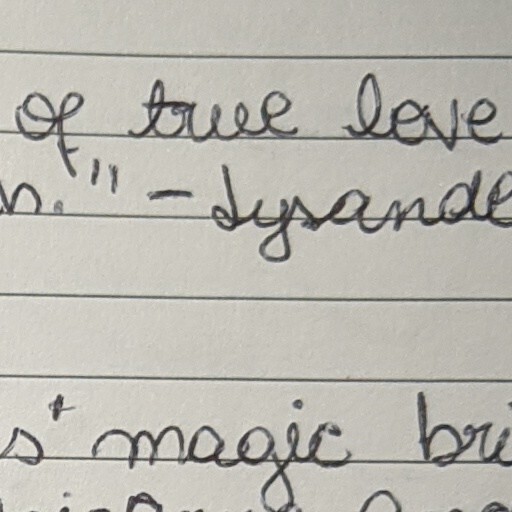 of true love
n." - Lysande
s' magic bri